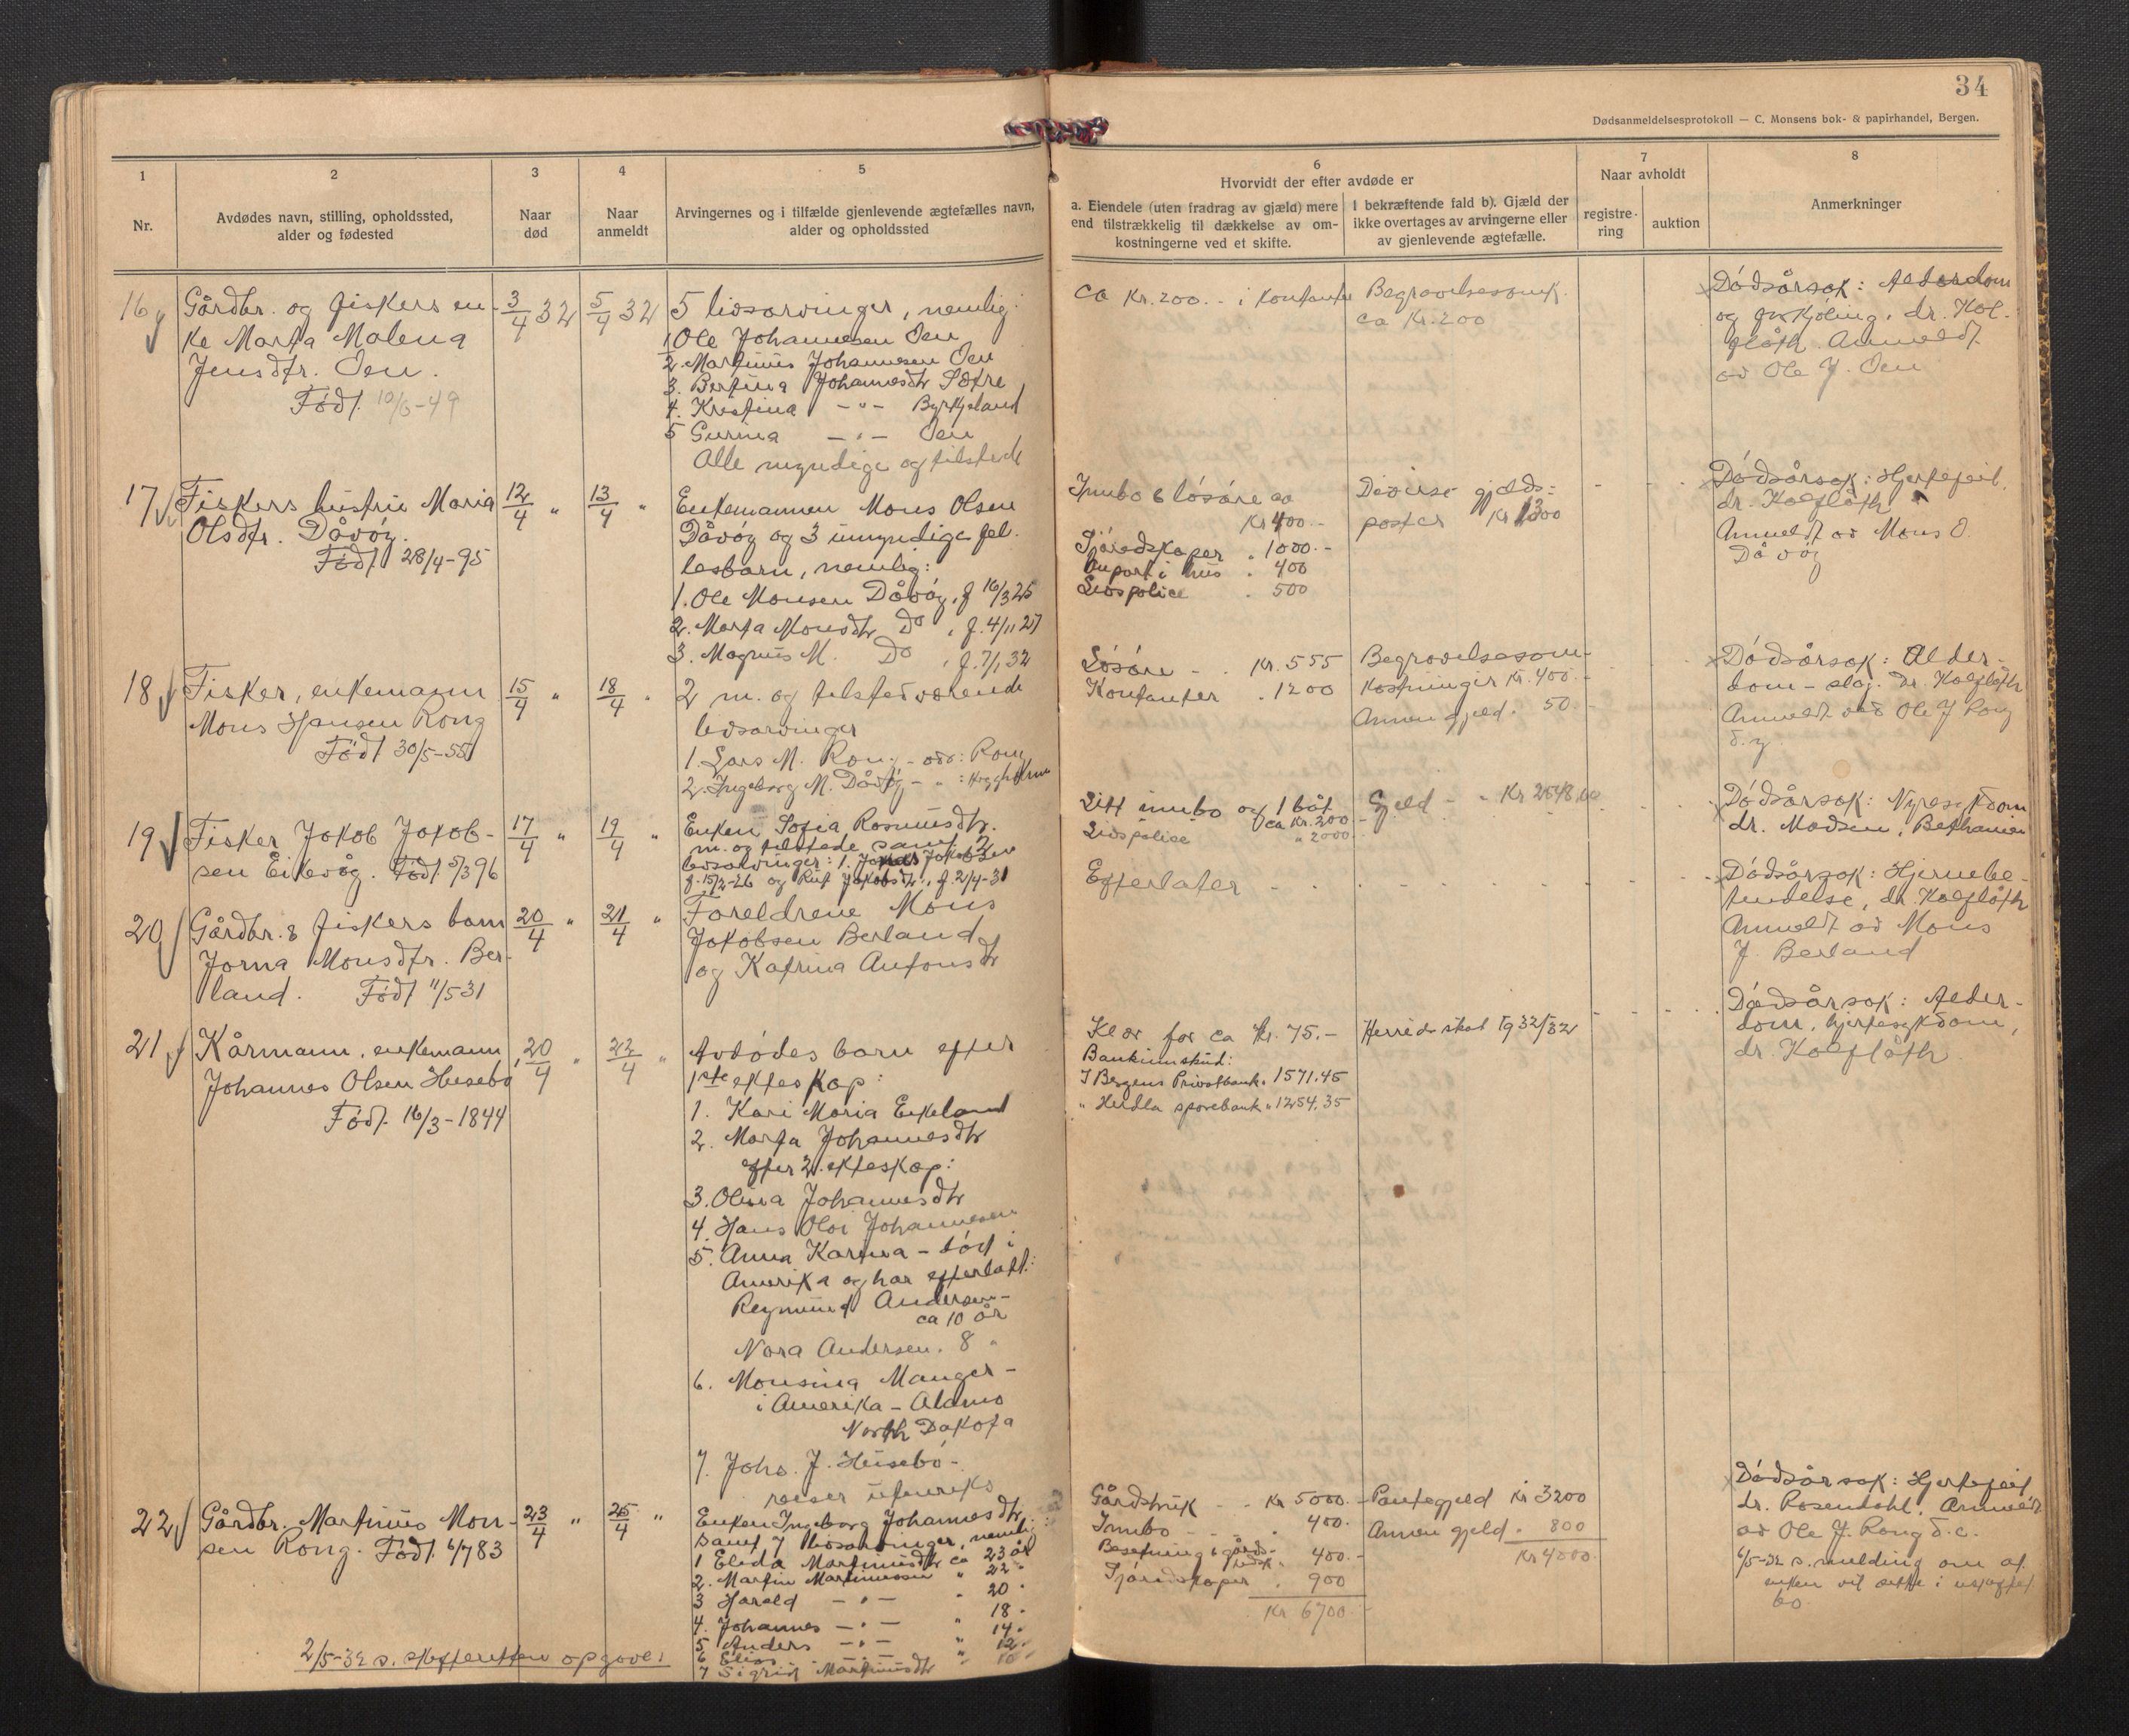 34
Dødsanmeldelsesprotokoll — C. Monsens bok- & papirhandel, Bergen.
1
Nr.
2
Avdødes navn, stilling, opholdssted,
alder og fødested
3
Naar
død
4
Naar
anmeldt
5
Arvingernes og i tilfælde gjenlevende ægtefælles navn,
alder og opholdssted
6
Hvorvidt der efter avdøde er
a. Eiendele (uten fradrag av gjæld) mere
end tilstrækkelig til dækkelse av om-
kostningerne ved et skifte.
I bekræftende fald b). Gjæld der
ikke overtages av arvingerne eller
av gjenlevende ægtefælle.
7
Naar avholdt
registre-
ring
auktion
8
Anmerkninger
16
Gårdbr. og fiskers en-
ke Marta Malena
Jensdtr. Oen.
Født 10/6-49
3/4 32
5/4 32
5 livsarvinger, nemlig:
1 Ole Johannesen Oen
2. Martinus Johannesen Oen
3. Bertina Johannesdtr Sætre
4. Kristina -"- Byrkjeland
5 Gurina -"- Oen
Alle myndige og tilstede
ca kr. 200.- i kontanter
Begravelsesomk.
ca kr. 200
Dødsårsak: Alderdom
og forkjøling. dr. Kal-
fløth. Anmeldt
av Ole J. Oen
17
Fiskers hustru Maria
Olsdtr. Dåvøy.
Født 28/4-95
12/4 "
13/4 "
Enkemannen Mons Olsen
Dåvøy og 3 umyndige fel-
lesbarn, nemlig:
1. Ole Monsen Dåvøy, f 16/3 25
2. Marta Monsdtr Do , f. 4/11 27
3. Magnus M. Do , f. 7/1 32
Innbo & løsøre ca
kr 400.-
Sjøredskaper " 1000.-
Anpart i hus " 400
Livspolice " 500
Diverse gjelds-
poster kr 1300
Dødsårsak: Hjertefeil.
dr. Kalfløth.
Anmeldt av Mons O.
Dåvøy
18
Fisker, enkemann
Mons Hansen Rong
Født 30/5-55
15/4 "
18/4 "
2 m. og tilstedeværende
livsarvinger
1. Lars M. Rong - adr: Rong
2. Ingeborg M. Dåvøy - " :
Løsøre - kr. 555
Kontanter " 1200
Begravelsesom-
kostninger kr. 400.-
Annen gjeld. 50.-
Dødsårsak: Alder-
dom - slag. Dr. Kalfløth
Anmeldt ved Ole J Rong
d.y.
19
Fisker Jakob Jakob-
sen Eikevåg. Født 5/3 96
17/4 "
19/4 "
Enken Sofia Rasmusdtr.
m. og tilstede samt 2
livsarvinger: 1. Jakob Jakobsen
f. 15/2-26 og Rut Jakobsdtr., f. 2/4-31
Litt innbo og 1 båt
ca kr. 200
Livspolice " 2000
Gjeld - - kr 2548.00
Dødsårsak: Nyresykdom
dr. Madsen, Bethanien
20
Gårdbr. & fiskers barn
Jorna Monsdtr. Ber-
land. Født 11/5 31
20/4 "
21/4 "
Foreldrene Mons
Jakobsen Berland
og Katrina Antonsdtr
Efterlater - - -
Dødsårsak: Hjernebe-
tendelse, dr. Kalfløth
Anmeldt av Mons
J. Berland
21
Kårmann, enkemann
Johannes Olsen Husebø
Født 16/3-1844
20/4 "
22/4 "
Avdødes barn efter
1ste ekteskap:
1. Kari Maria Eikeland
2. Marta Johannesdtr
efter 2. ekteskap:
3. Olina Johannesdtr
4. Hans Olai Johannesen
5. Anna Karina - død i
Amerika og har efterlatt:
Reymund Andersen -
ca 10 år
Nora Andersen. 8 "
6. Monsina Manger -
i Amerika - Alamo
North Dakota
7. Johs. J. Husebø -
reiser utenriks
Klær for ca kr. 75.-
Bankinnskud:
I Bergens Privatbank. 1571.45
" Herdla sparebank " 1254.35
Herredsskat
Dødsårsak: Alder-
dom, hjertesykdom,
dr. Kalfløth.
22
Gårdbr. Martinus Mon-
sen Rong. Født 6/7 83
23/4 "
25/4 "
Enken Ingeborg Johannesdtr,
samt 7 livsarvinger, nemlig:
1 Elida Martinusdtr ca 23 år
2. Martin Martinussen " 22 "
3 Harald -"- " 20 "
4. Johannes -"- " 18 "
5 Anders -"- " 14 "
6 Elias -"- " 12 "
7 Sigrid Martinusdtr " 10 "
Gårdsbruk - - kr 5000.-
Innbo - - " 400.-
Besetning & gårds-
redsk. " 400.-
Sjøredskaper " 900
kr 6700.-
Pantegjeld kr 3200
Annen gjeld " 800
kr 4000.-
Dødsårsak: Hjertefeil
dr. Rosendahl. Anmeldt
av Ole J. Rong d.e.
6/5-32 s. melding om at
enken vil sitte i uskiftet
bo
2/5-32 s. skifteretten opgave.